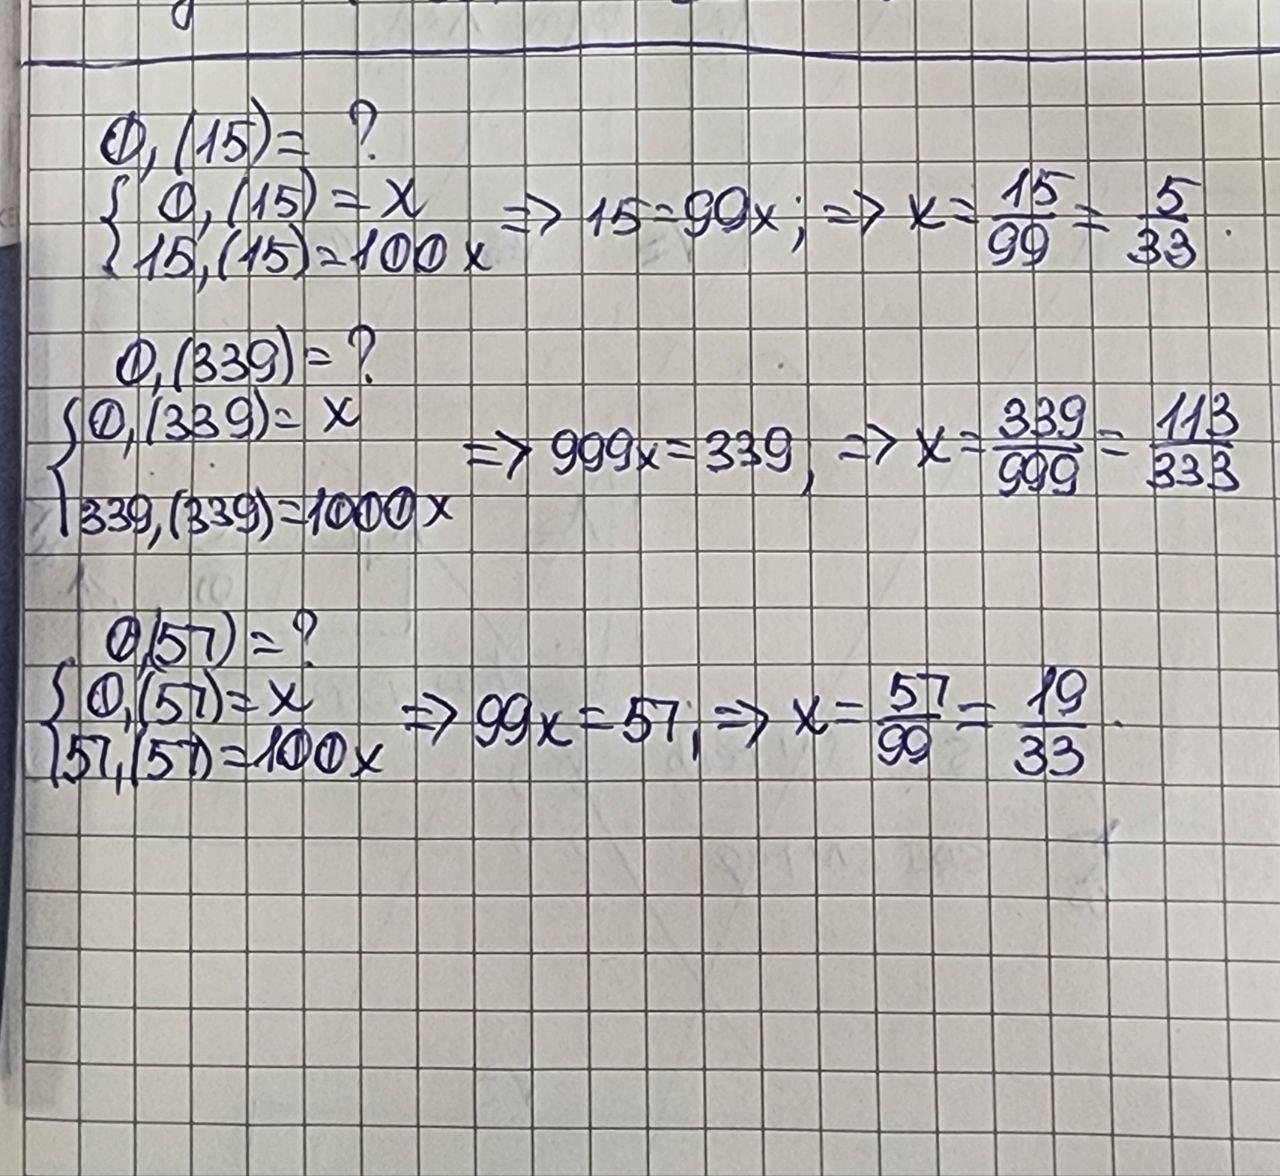 0,(15)= ?
{ 0,(15)=x
15,(15)=100x => 15=99x; => x= 15/99 = 5/33.
0,(339)=?
{ 0,(339)= x
339,(339)=1000x => 999x=339, => x= 339/999 = 113/333
0,(57)=?
{ 0,(57)=x
57,(57)=100x => 99x=57; => x= 57/99 = 19/33.